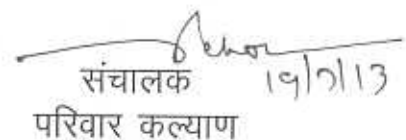 संचालक 19/7/13
परिवार कल्याण